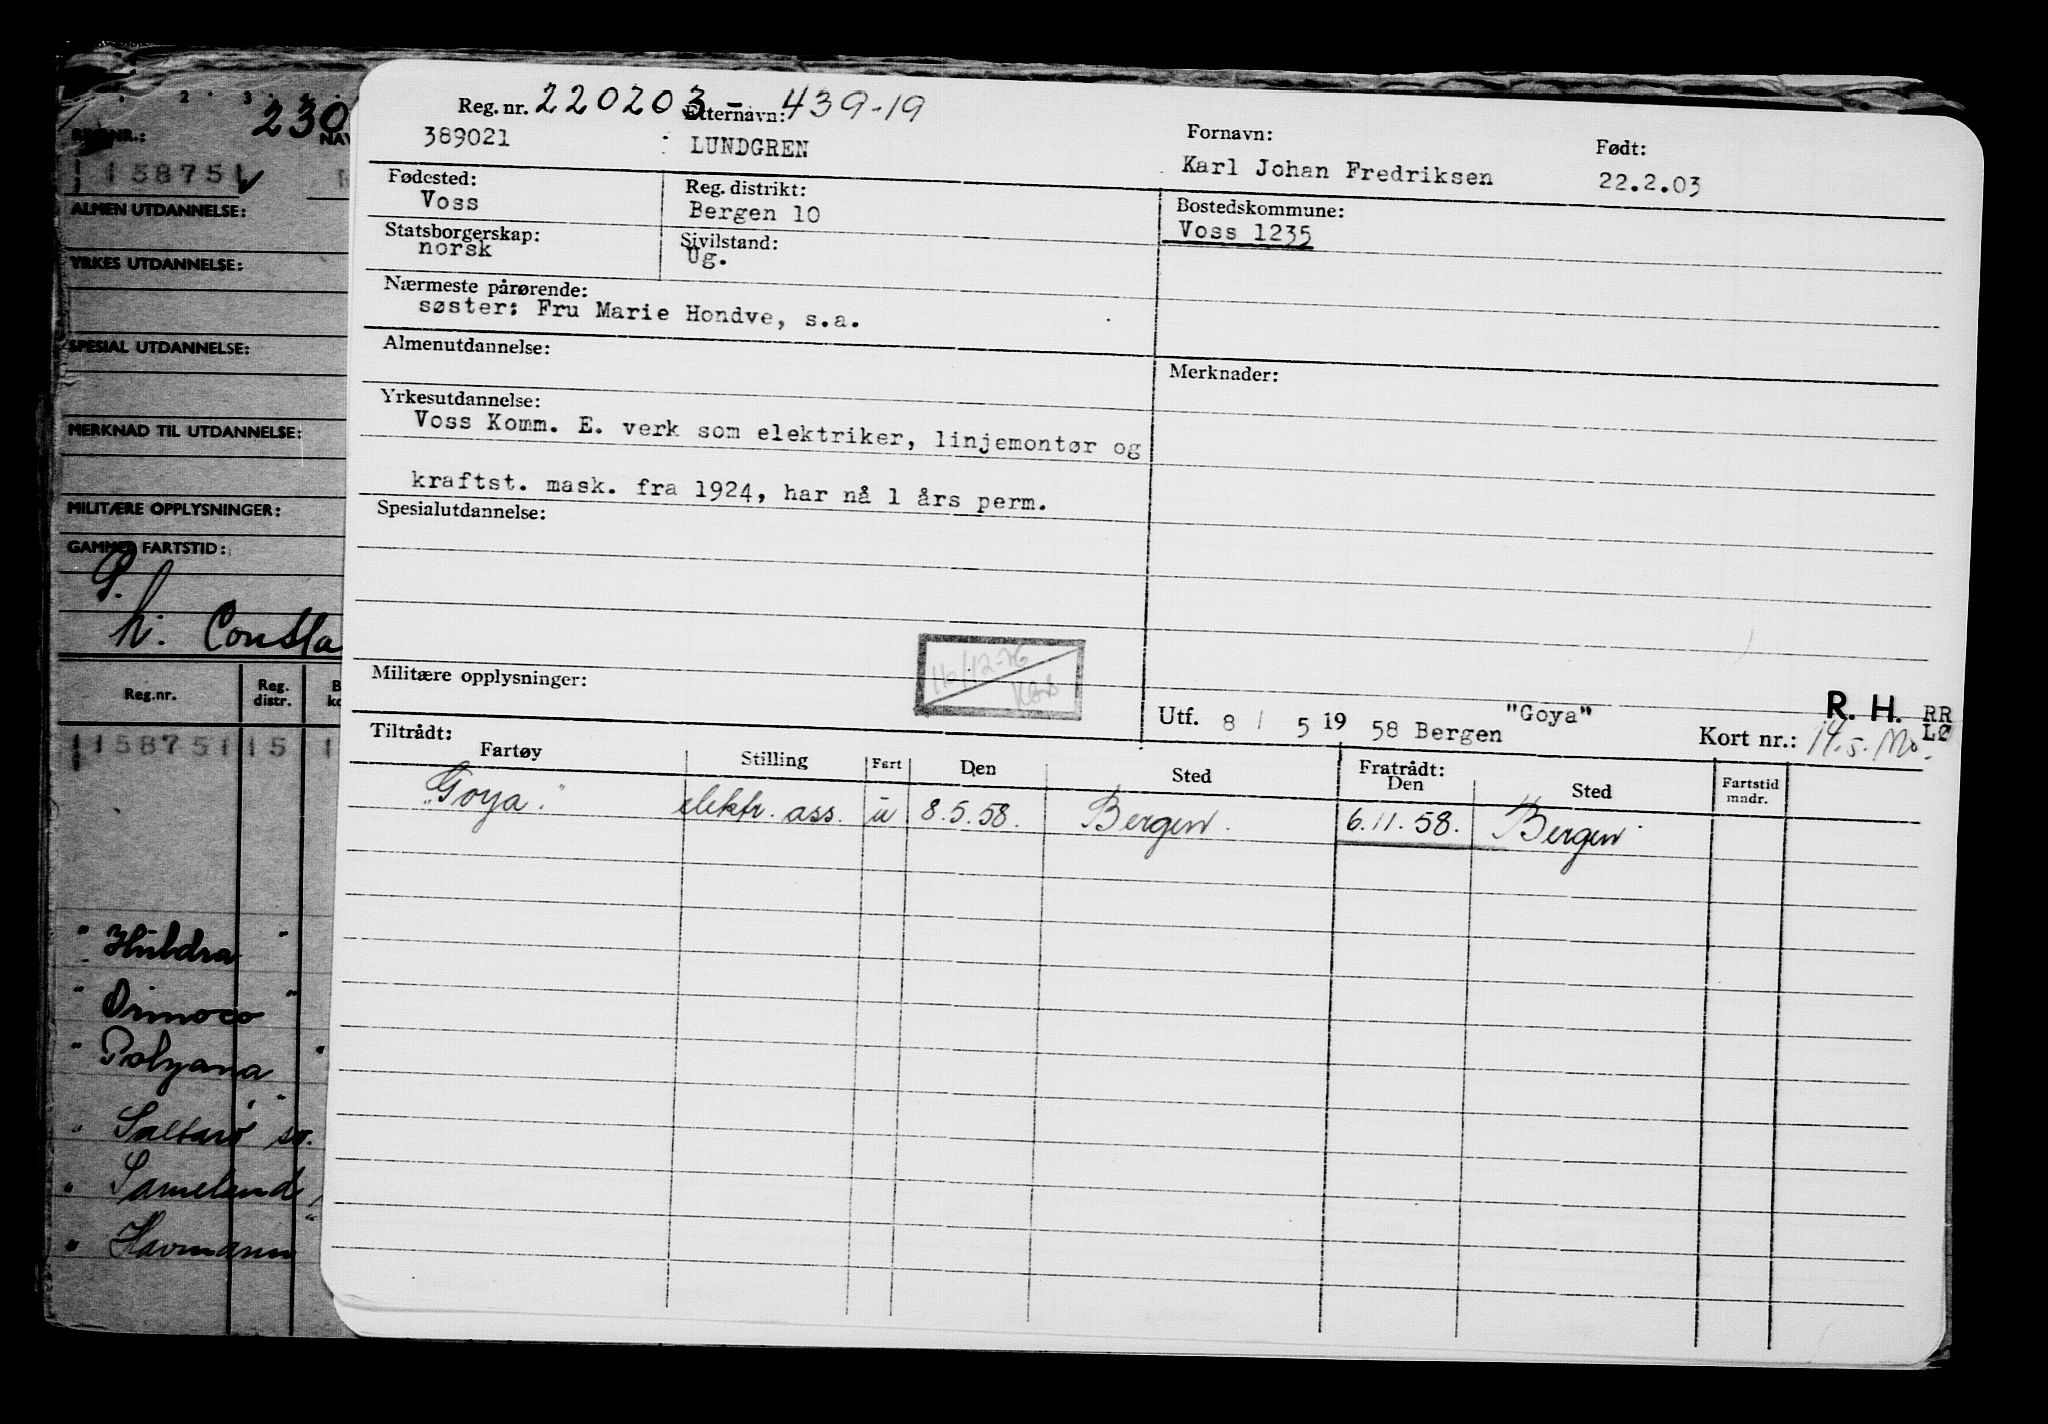 Reg. nr. 220203 - 439-19
389021
Etternavn:
LUNDGREN
Fornavn:
Karl Johan Fredriksen
Født:
22.2.03
Fødested:
Voss
Reg. distrikt:
Bergen 10
Bostedskommune:
Voss 1235
Statsborgerskap:
norsk
Sivilstand:
Ug.
Nærmeste pårørende:
søster: Fru Marie Hondve, s.a.
Almenutdannelse:
Merknader:
Yrkesutdannelse:
Voss Komm. E. verk som elektriker, linjemontør og
kraftst. mask. fra 1924, har nå 1 års perm.
Spesialutdannelse:
16/12-76
Militære opplysninger:
Utf. 8 / 5 19 58 Bergen
"Goya"
R. H.
RR
LØ
Kort nr.:
Tiltrådt:
Fartøy Stilling Fart Den Sted Fratrådt: Den Sted Fartstid mndr.
"Goya." elektr. ass. u 8.5.58. Bergen. 6.11.58. Bergen.
1 2 3
230
REG.NR.:
NAV
115875 1
ALMEN UTDANNELSE:
YRKES UTDANNELSE:
SPESIAL UTDANNELSE:
MERKNAD TIL UTDANNELSE:
MILITÆRE OPPLYSNINGER:
GAMMEL FARTSTID:
h. Consta
Reg.nr. Reg. distr. B ko
1158751 15 1
" Huldra "
" Orinoco "
" Polyana "
" Saltarø" so.
" Samelund
" Havmann "